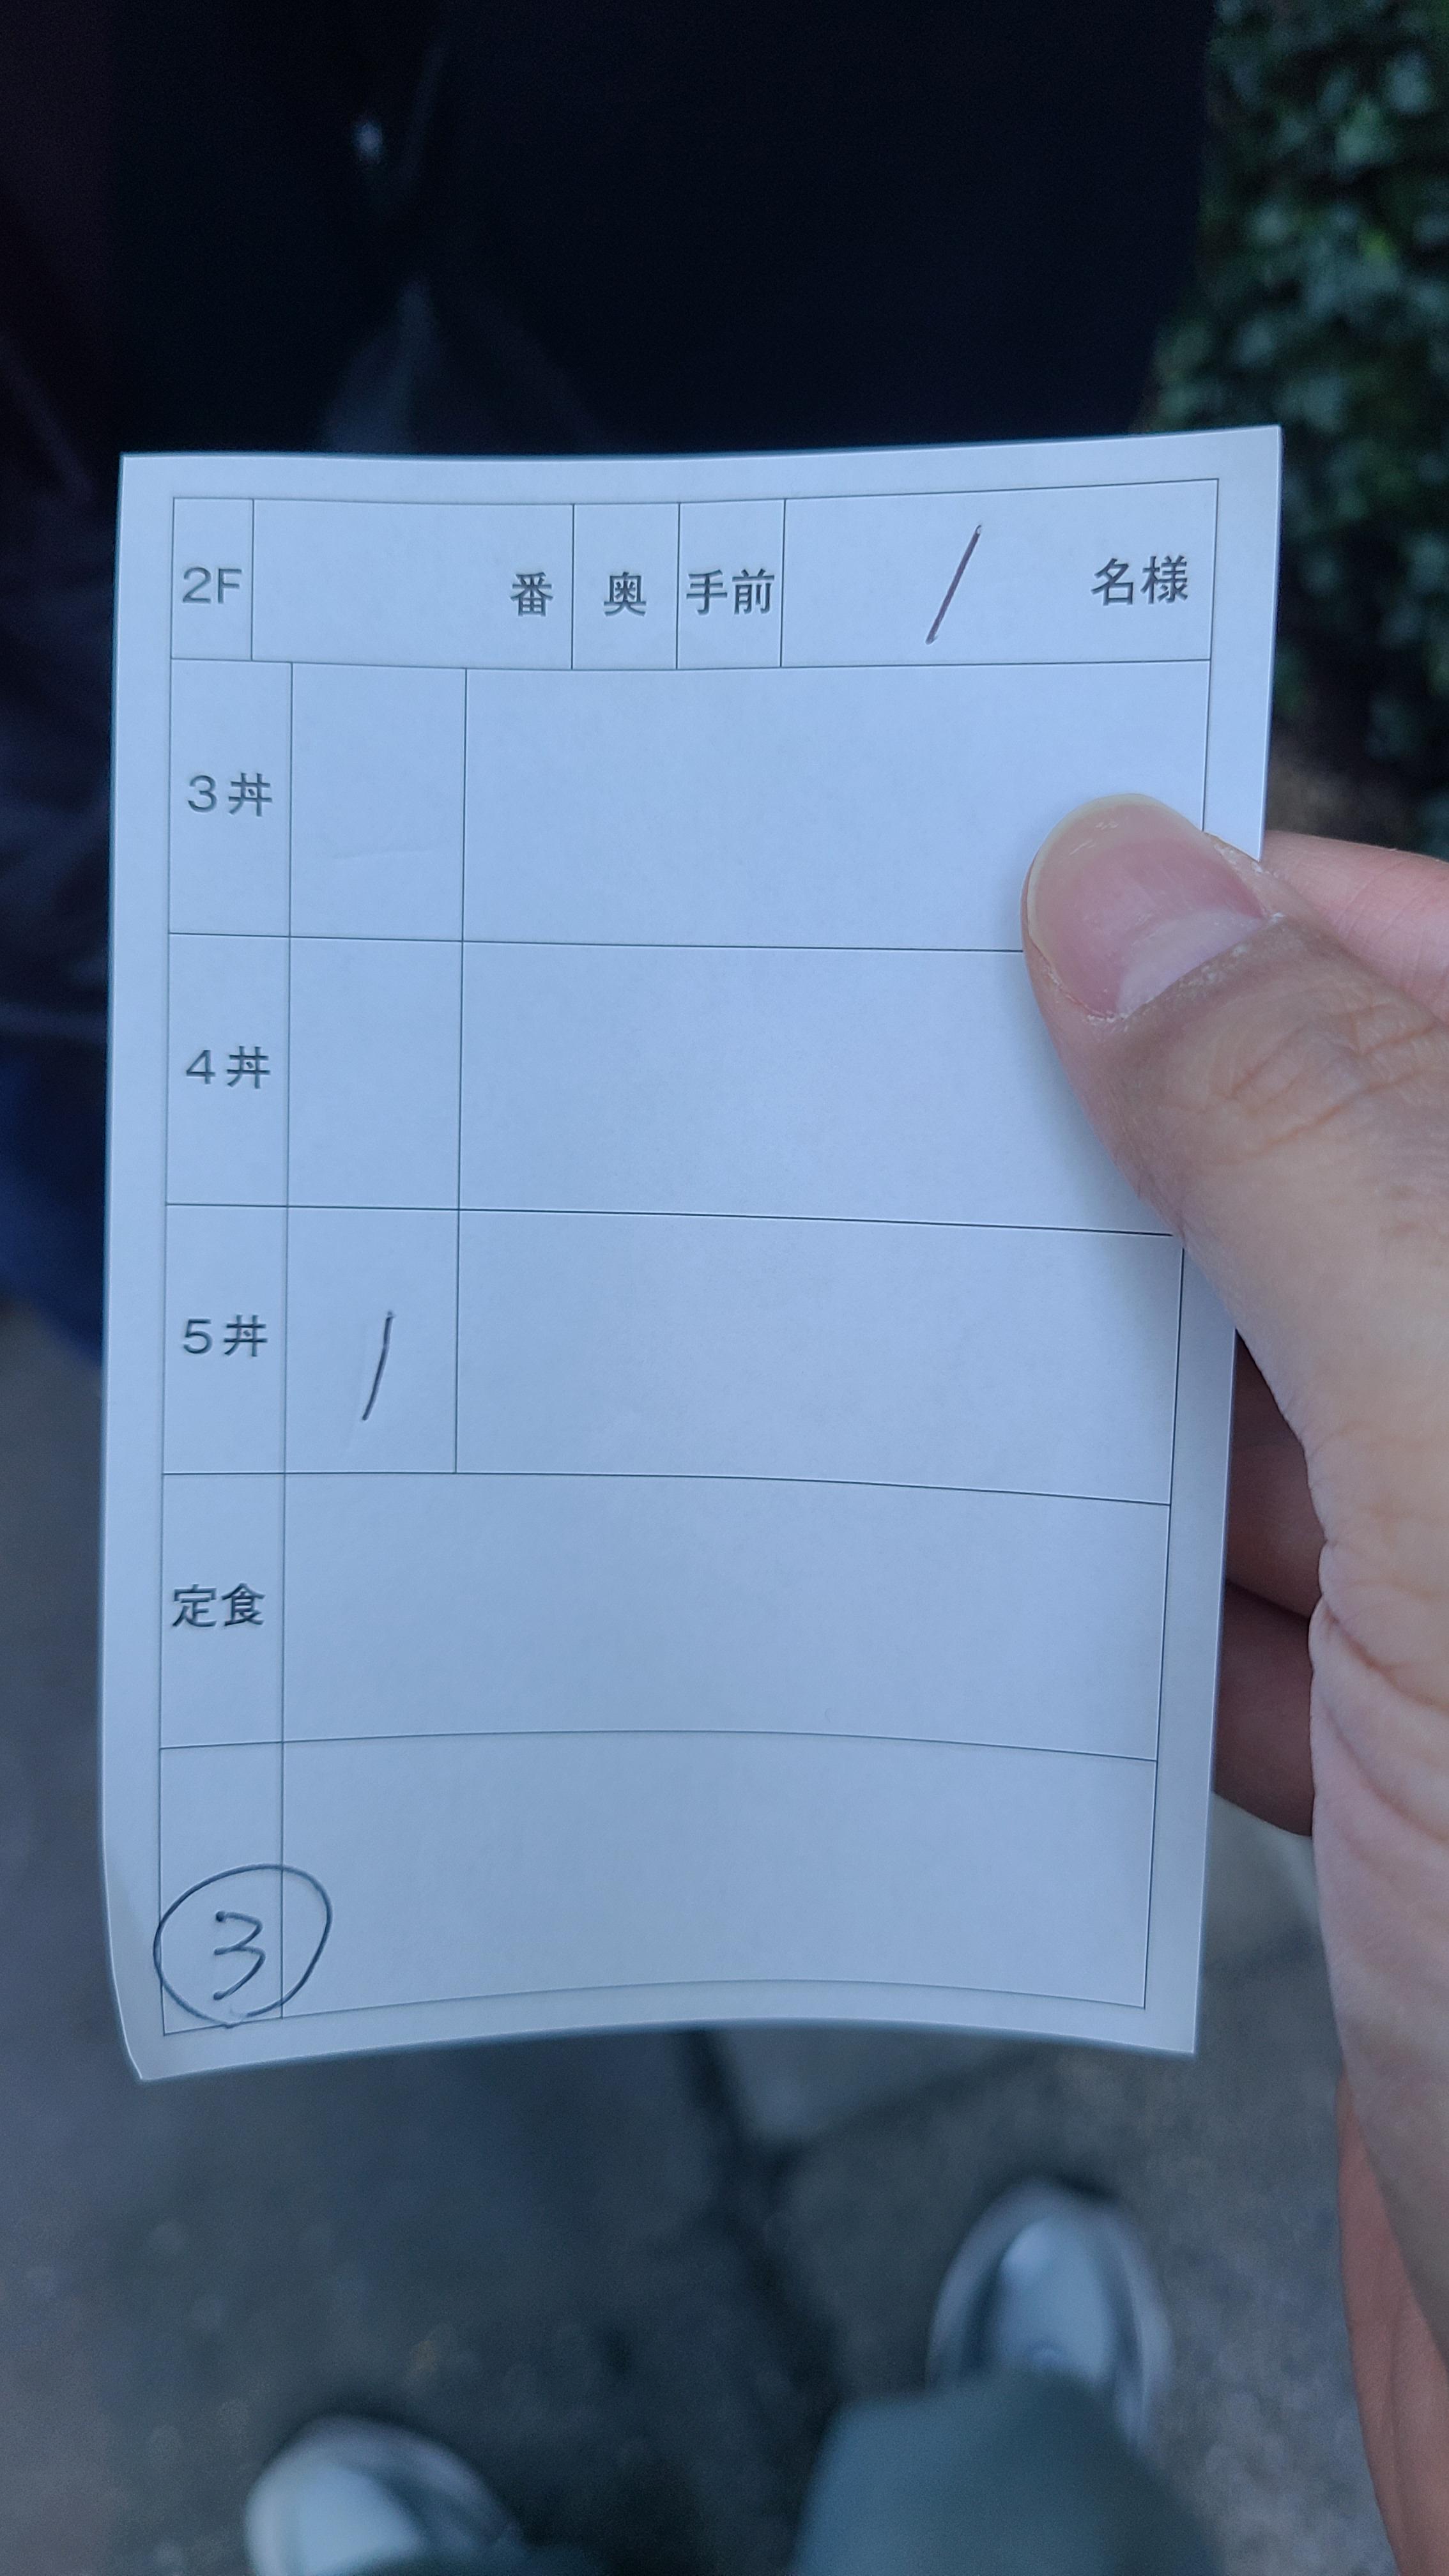 2F 番 奥 手前 / 名様
3丼
4丼
5丼 /
定食
③